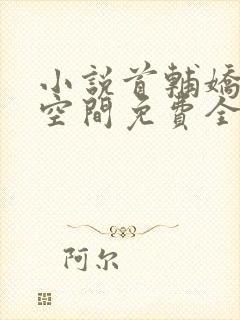 小說首輔嬌
空間免費全
阿尔